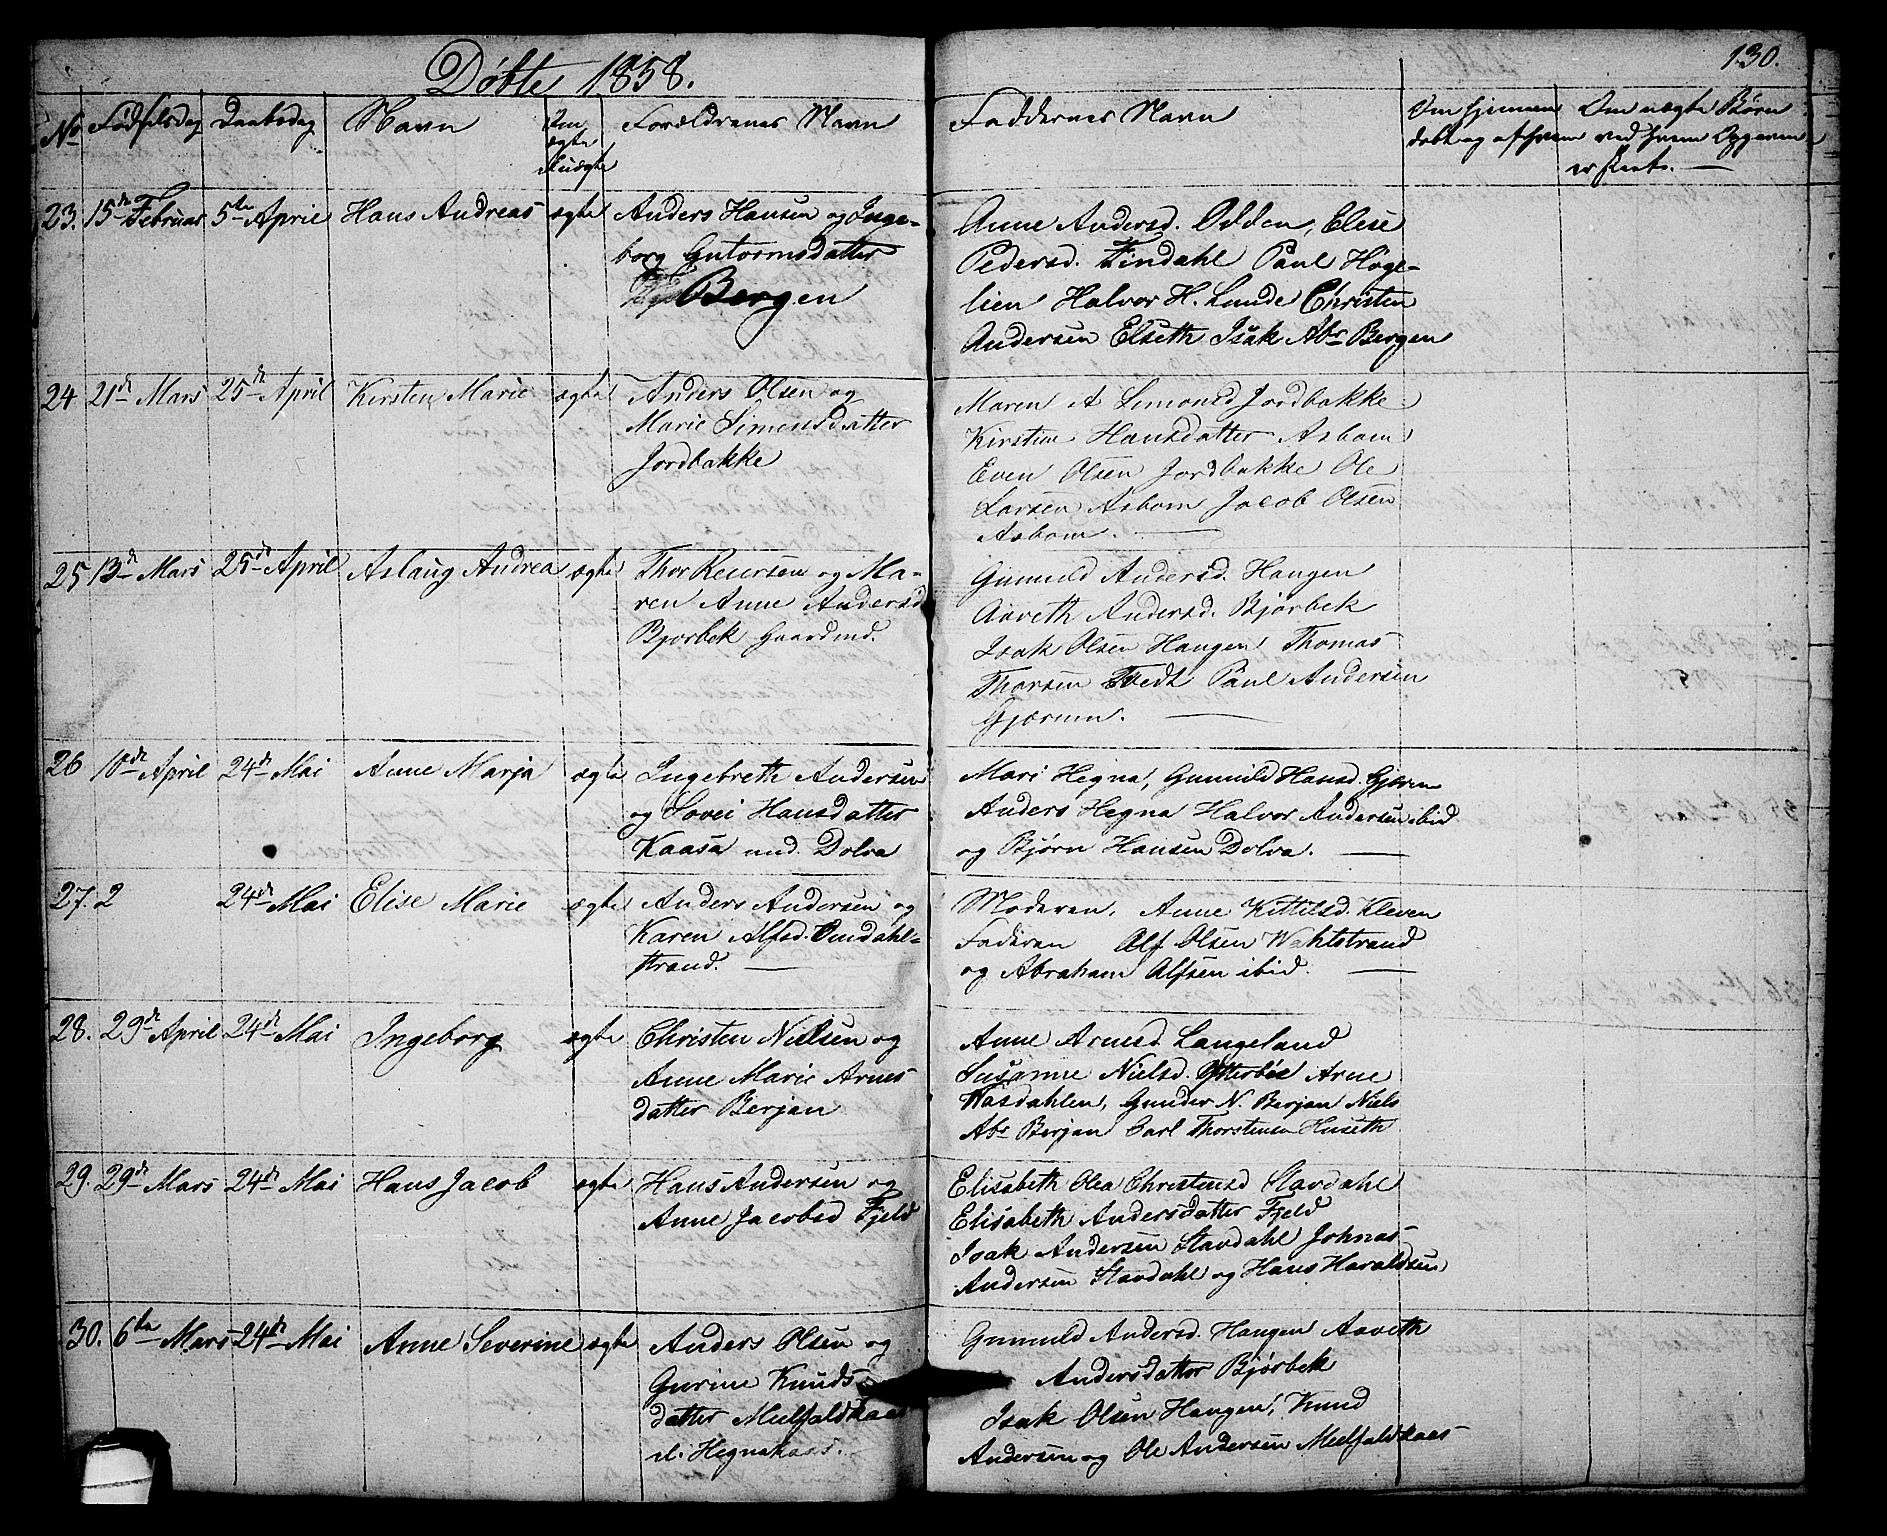 Døbte 1858.
130.
No Fødselsdag Daabsdag Navn Om ægte Forældrenes Navn
Faddernes Navn Om hjemmedøbt og af hvem Om uægte Børn ved hvem Opgaven er skeet. —
23. 15de Februar 5te April Hans Andreas ægte Anders Hansen og Inge-
borg Gutormsdatter
Bergen
Anne Andersd. Odden, Elise
Pedersd. Findahl Paul Høge-
lien Halvor H. Lunde Christen
Andersen Elseth Isak Abr. Bergen
24 21de Mars 25de April Kirsten Marie ægte Anders Olsen og
Marie Simonsdatter
Jordbakke
Maren A Simonsd Jordbakke
Kirstine Hansdatter Asbom
Even Olsen Jordbakke Ole
Larsen Asbom Jacob Olsen
Asbom. —
25 13de Mars 25de April Aslaug Andrea ægte Thor Reiersen og Ma-
ren Anne Andersd
Bjørbek Gaardmd.
Gunuld Andersd. Haugen
Aaveth Andersd. Bjørbek
Isak Olsen Haugen Thomas
Thorsen Tvedt Paul Andersen
Gjærum. —
26 10de April 24de Mai Anne Marja ægte Ingebreth Andersen
og Sovei Hansdatter
Kaasa und. Dolva
Mari Hegna, Gunuld Hansd. Gjærum
Anders Hegna Halvor Andersen ibid
og Bjørn Hansen Dolva. —
27. 2 24de Mai Elise Marie ægte Anders Andersen og
Karen Alfsd. Omdahl-
strand. —
Moderen, Anne Kittilsd. Kleven
Faderen Alf Olsen Wahlstrand
og Abraham Alfsen ibid. —
28. 29de April 24de Mai Ingeborg ægte Christen Nielsen og
Anne Marie Arnes
datter Berjan
Anne Arnesd Langeland
Susanne Nielsd. Ytterbøe Arne
Wasdahlen, Gunder N. Berjan Niels
Abr. Berjan Carl Thorstensen Huseth
29. 29de Mars 24de Mai Hans Jacob ægte Hans Andersen og
Anne Jacobsd Fjeld
Elisabeth Olea Christensd Stavdahl
Elisabeth Andersdatter Fjeld
Isak Andersen Stavdahl Johnas
Andersen Stavdahl og Hans Haraldsen
30. 6te Mars 24de Mai Anne Severine ægte Anders Olsen og
Gurine Knuds
datter Mielfaldkaas
el. Hegnakaas.
Gunuld Andersd. Haugen Aaveth
Andersdatter Bjørbek
Isak Olsen Haugen, Knud
Andersen og Ole Andersen Mielfaldkaas